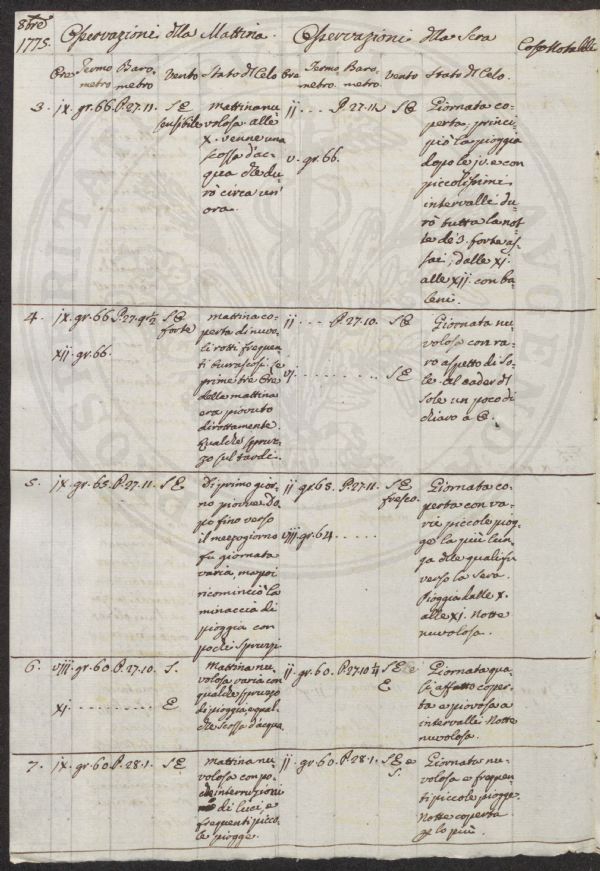 8bre
1775. Osservazioni dlla Mattina. Osservazioni dlla Sera Cose Notabili
Ore Termo Baro, Vento Stato dl Celo Ore Termo Baro, Vento Stato dl Celo.
metro metro metro. metro
3. ix. gr. 66. P. 27. 11. SE
sensibile
mattina nu
volosa. alle
x. venne una
scossa d'ac-
qua che du
rò circa un'
ora.
ii . . . P. 27. 11. SE
v. gr. 66.
Giornata co-
perta, princi-
piò la pioggia
dopo le iv. e con
piccolissimi
intervalli du-
rò tutta la not
te de 3. forte as-
sai, dalle xi.
alle xii. con ba-
leni.
4. ix. gr. 66. P. 27. 9 1/2 SE
forte
xii. gr. 66.
mattina co-
perta di nuvo-
li rotti frequen
ti burrascosi. le
prime tre Ore
della mattina
era piovuto
dirottamente.
Qualche spruz-
zo sul tardi.
ii . . . . P. 27. 10. SE
vi . . . . . . . . . SE
Giornata nu
volosa con ra-
ro aspetto di So-
le. al cader dl
Sole un poco di
chiaro a
5. ix. gr. 65. P. 27. 11. SE
di primo gior-
no piovve. Do
po fino verso
il mezzogiorno
fu giornata
varia, ma poi
ricominciò la
minaccia di
pioggia con
pochi spruzzi
ii gr. 65. P. 27. 11. SE
fresco.
viii. gr. 64 . . . . .
Giornata co-
perta con va-
rie piccole piog-
ge la più lun-
ga dlle quali fu
verso la Sera.
Pioggia dalle x.
alle xi. Notte
nuvolosa.
6. viii. gr. 60. P. 27. 10. S.
xi. . . . . . . . . . E
Mattina nu-
volosa varia con
qualche spruzzo
di pioggia, e qual-
che scossa d'acqua.
ii. gr. 60. P. 27. 10 1/4 SE
E
Giornata qua-
si affatto coper-
ta e piovosa a
intervalli. Notte
nuvolosa.
7. ix. gr. 60. P. 28. 1. SE
mattina nu-
volosa con po-
che interruzioni
di luci, e
frequenti picco-
le piogge.
ii. gr. 60. P. 28. 1. SE e
S.
Giornata nu-
volosa e frequen
ti piccole piogge.
Notte coperta
p lo più.